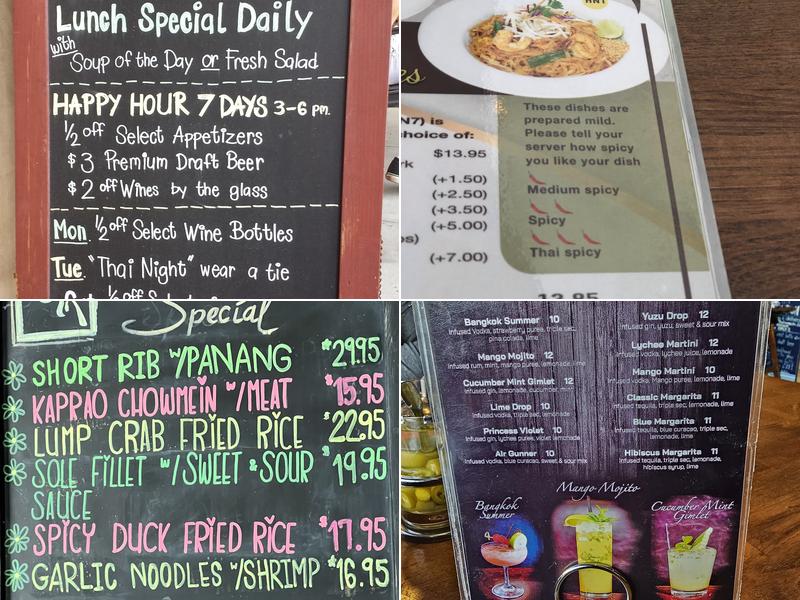 Lunch Special Daily
with
Soup of the Day or Fresh Salad
HAPPY HOUR 7 DAYS 3-6 pm.
1/2 off Select Appetizers
$3 Premium Draft Beer
$2 off Wines by the glass
Mon 1/2 off Select Wine Bottles
Tue "Thai Night" wear a tie
RN1
es
N7) is
hoice of:
$13.95
rk
(+1.50)
(+2.50)
(+3.50)
(+5.00)
os)
(+7.00)
These dishes are
prepared mild.
Please tell your
server how spicy
you like your dish
Medium spicy
Spicy
Thai spicy
Special
SHORT RIB W/PANANG $29.95
KAPRAO CHOWMEIN W/MEAT $15.95
LUMP CRAB FRIED RICE $22.95
SOLE FILLET W/SWEET & SOUR $19.95
SAUCE
SPICY DUCK FRIED RICE $17.95
GARLIC NOODLES W/SHRIMP $16.95
Bangkok Summer 10
Infused Vodka, strawberry puree, triple sec,
pina colada, lime
Mango Mojito 12
Infused rum, mint, mango puree, lemonade, lime
Cucumber Mint Gimlet 12
Infused gin, lemonade, cucumber
Lime Drop 10
Infused vodka, triple sec, lemonade, lime
Princess Violet 10
Infused gin, lychee puree, violet lemonade
Air Gunner 10
Infused vodka, blue curacao, sweet & sour mix
Yuzu Drop 12
Infused gin, yuzu, sweet & sour mix
Lychee Martini 12
Infused vodka, lychee juice, lemonade
Mango Martini 10
Infused vodka, Mango puree, lemonade, lime
Classic Margarita 11
Infused tequila, triple sec, lemonade, lime
Blue Margarita 11
Infused tequila, blue curacao, triple sec,
lemonade, lime
Hibiscus Margarita 11
Infused tequila, triple sec, lemonade,
hibiscus syrup, lime
Bangkok
Summer
Mango Mojito
Cucumber Mint
Gimlet